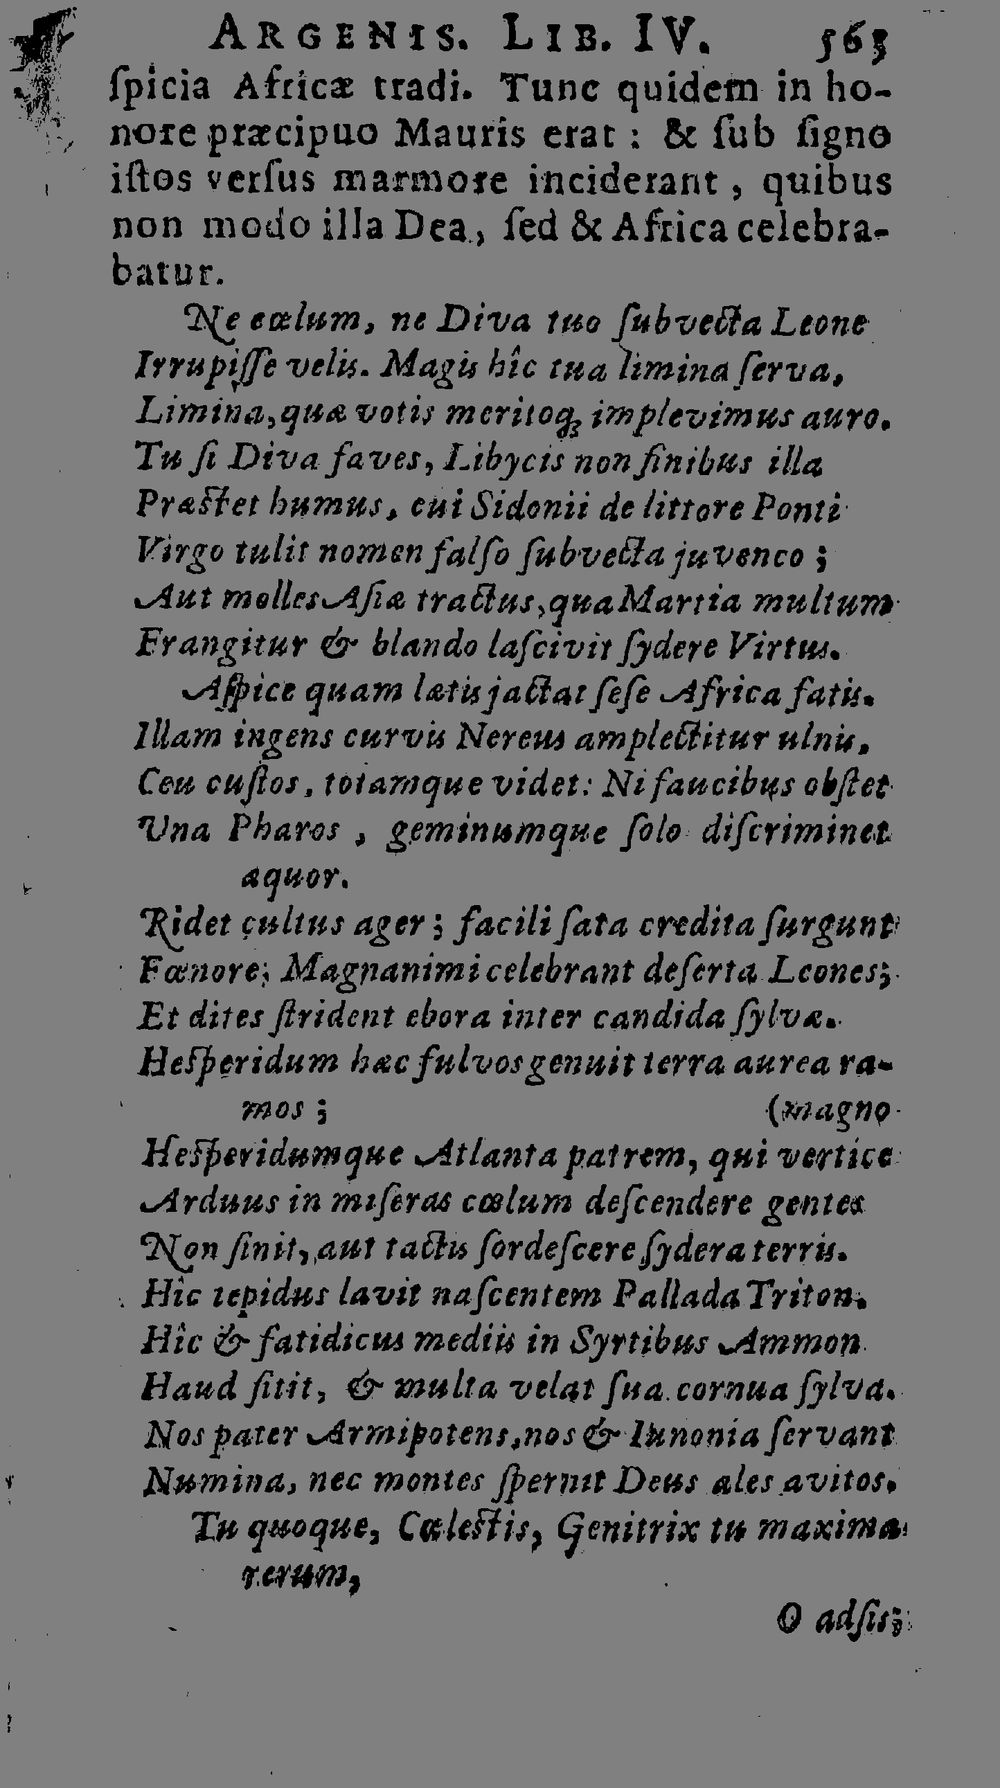 ARGENIS. LIB. IV. 563
ſpicia Africæ tradi. Tunc quidem in ho-
nore præcipuo Mauris erat : & ſub ſigno
iſtos verſus marmore inciderant , quibus
non modo illa Dea, ſed & Africa celebra-
batur.
Ne cœlum, ne Diva tuo ſubvecta Leone
Irrupiſſe velis. Magis hîc tua limina ſerva,
Limina, quæ votis meritoq; implevimus auro.
Tu ſi Diva faves, Libycis non finibus illa
Præſtet humus, cui Sidonii de littore Ponti
Virgo tulit nomen falſo ſubvecta juvenco ;
Aut molles Aſiæ tractus, qua Martia multum
Frangitur & blando laſcivit ſydere Virtus.
Aſpice quam lætis jactat ſeſe Africa fatis.
Illam ingens curvis Nereus amplectitur ulnis,
Ceu cuſtos, totamque videt: Ni faucibus obſtet
Una Pharos , geminumque ſolo diſcriminet
æquor.
Ridet cultus ager ; facili ſata credita ſurgunt
Fœnore; Magnanimi celebrant deſerta Leones;
Et dites ſtrident ebora inter candida ſylvæ.
Heſperidum hæc fulvos genuit terra aurea ra-
mos ; (magno
Heſperidumque Atlanta patrem, qui vertice
Arduus in miſeras cœlum deſcendere gentes
Non ſinit, aut tactis ſordeſcere ſydera terris.
Hîc tepidus lavit naſcentem Pallada Triton.
Hîc & fatidicus mediis in Syrtibus Ammon
Haud ſitit, & multa velat ſua cornua ſylva.
Nos pater Armipotens, nos & Iunonia ſervant
Numina, nec montes ſpernit Deus ales avitos.
Tu quoque, Cœleſtis, Genitrix tu maxima
rerum,
O adſis;